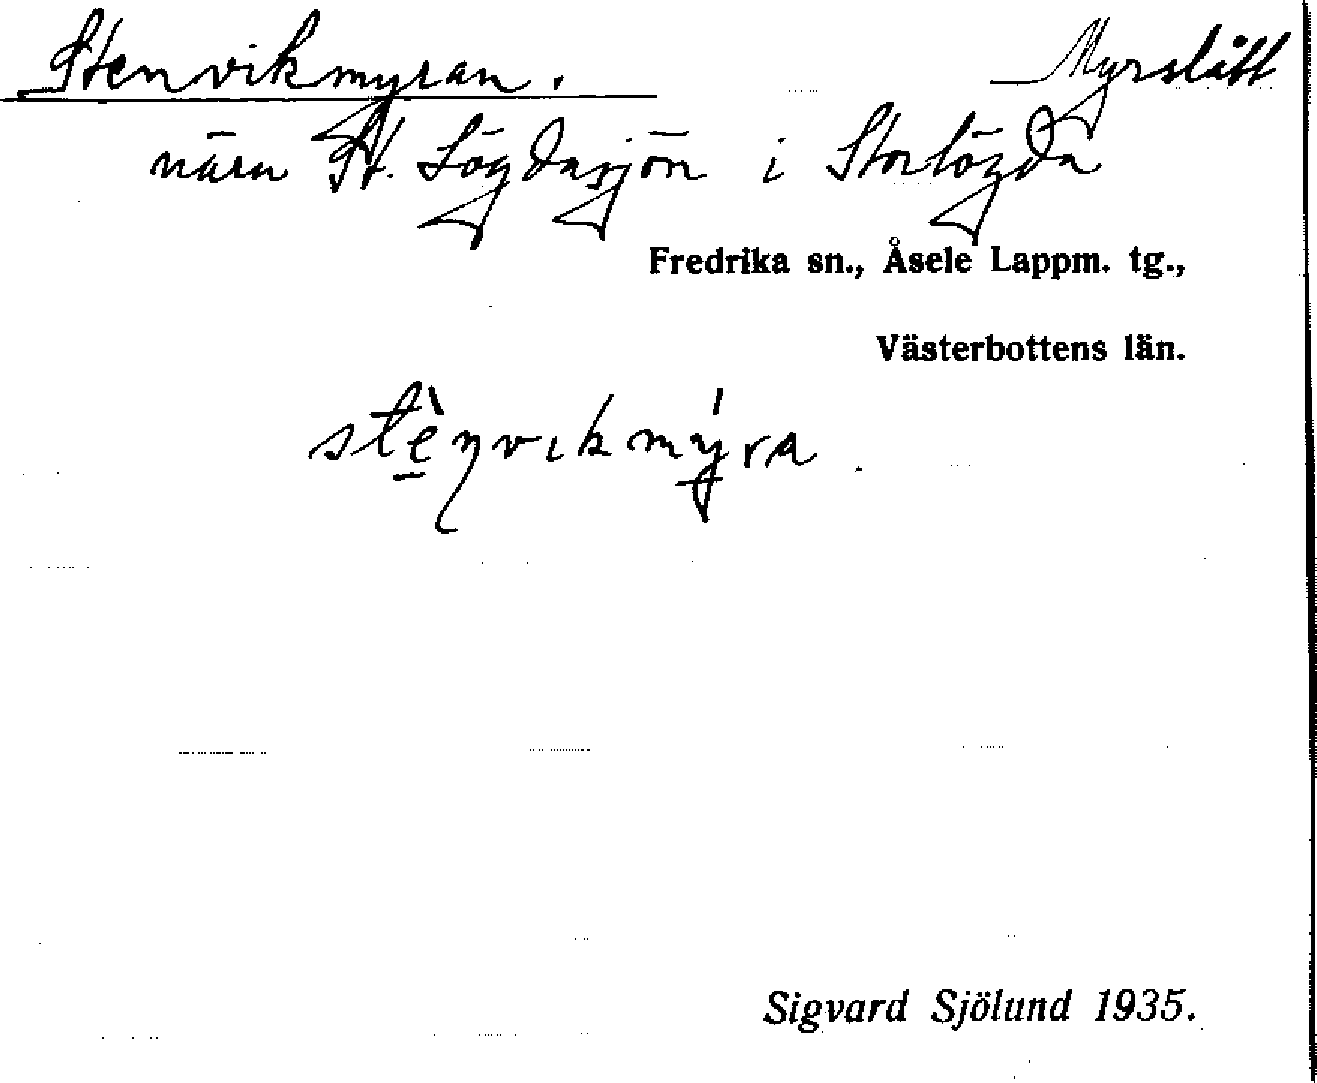 Stenvikmyran. Myrslått
nära St. Lögdasjön i Storlögda
Fredrika sn., Åsele Lappm. tg.,
Västerbottens län.
stè̠ŋvikmýra.
Sigvard Sjölund 1935.